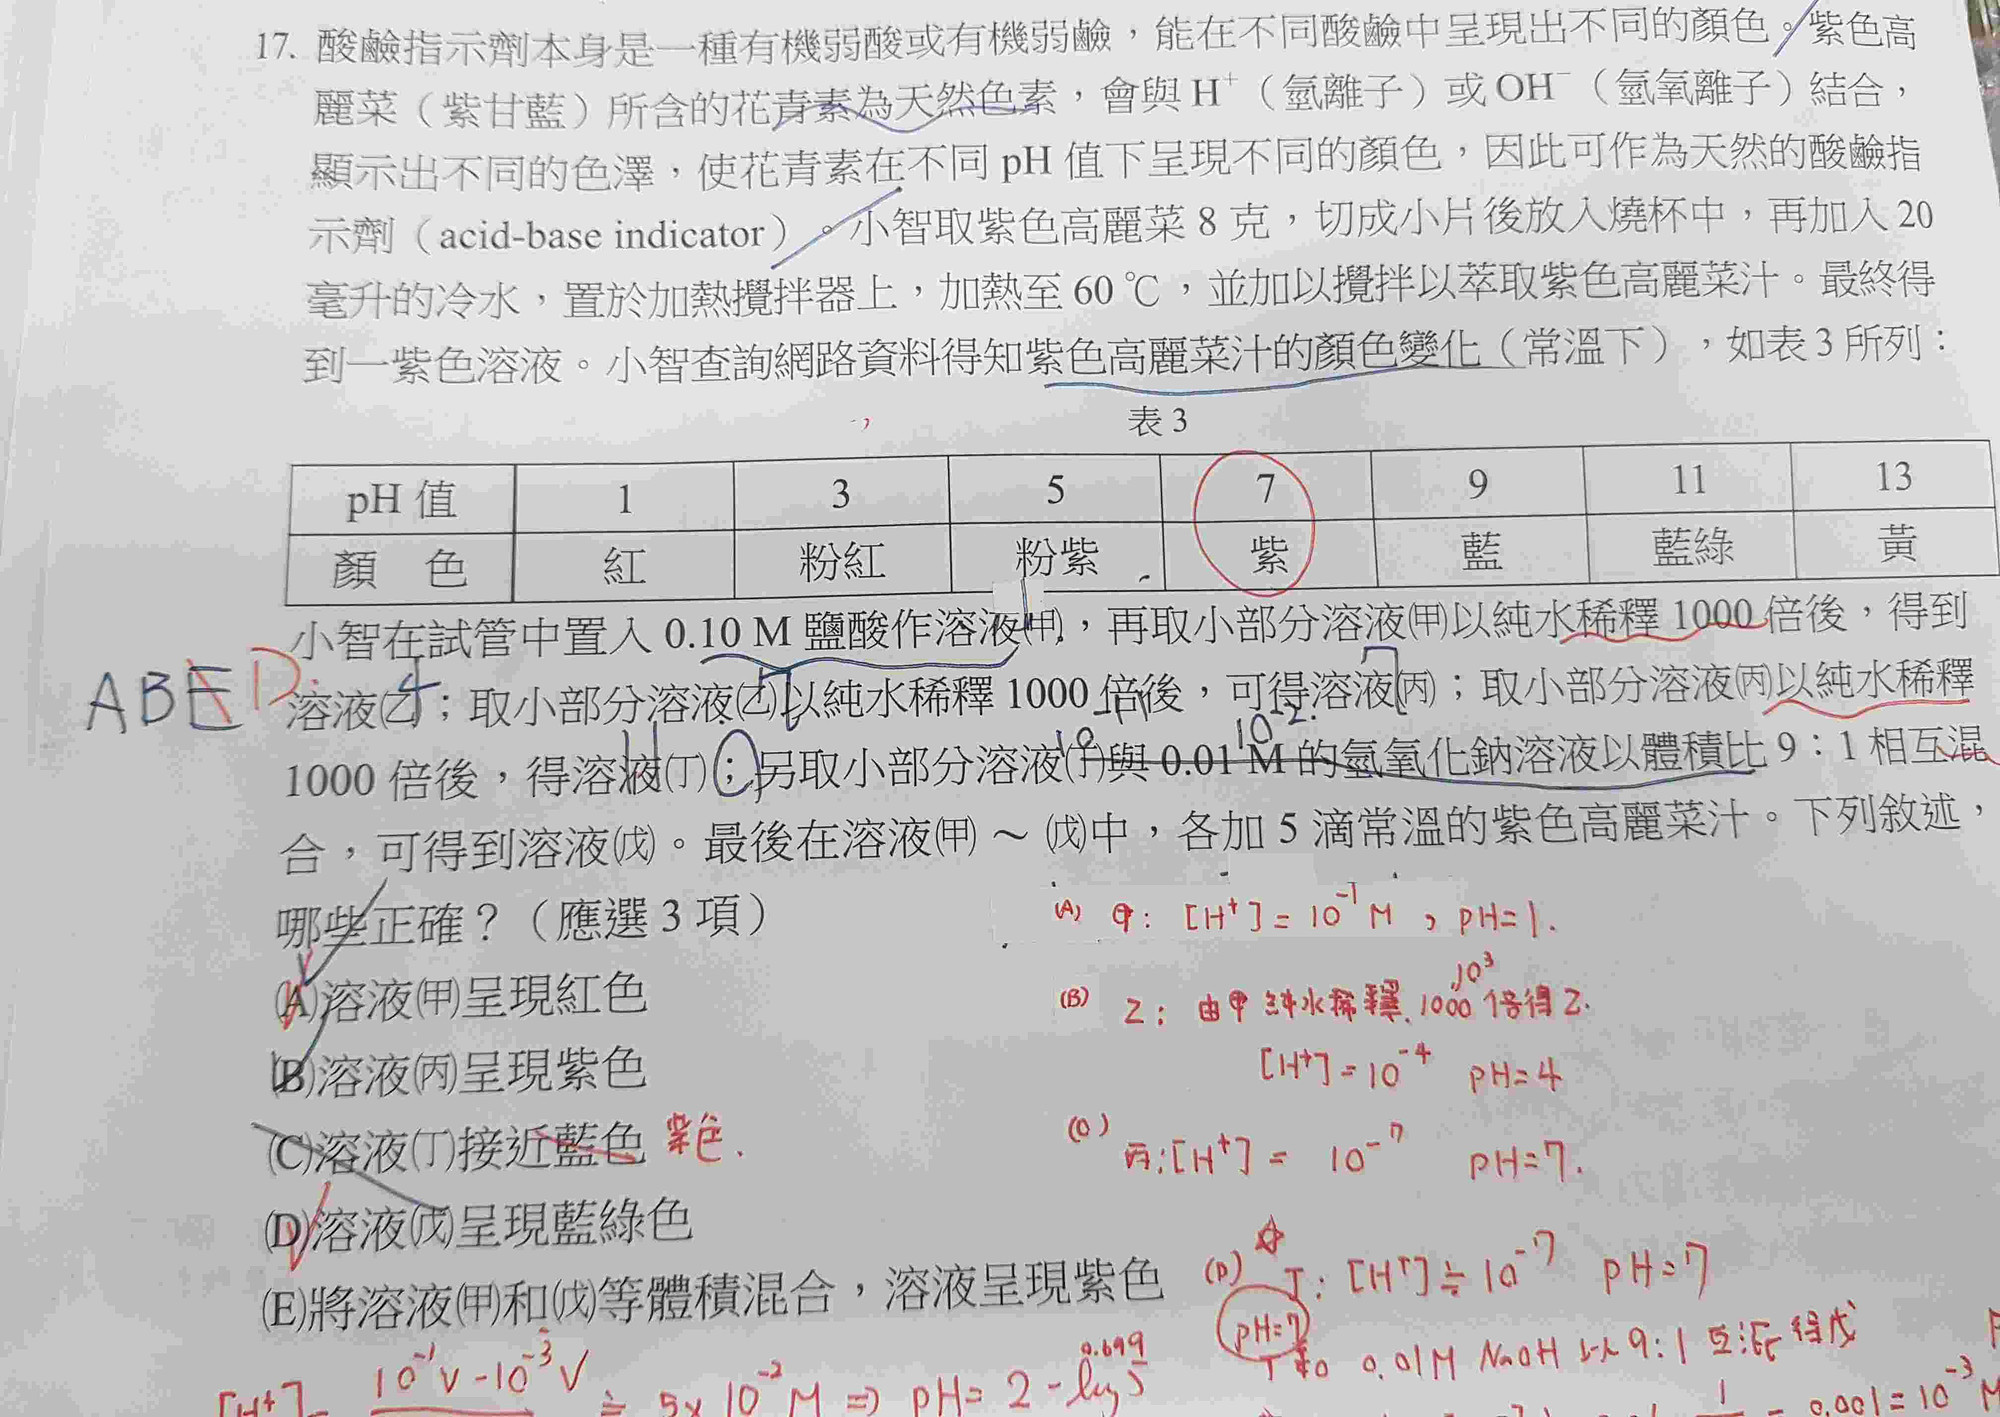 17. 酸鹼指示劑本身是一種有機弱酸或有機弱鹼，能在不同酸鹼中呈現出不同的顏色。紫色高
麗菜（紫甘藍）所含的花青素為天然色素，會與 H⁺（氫離子）或 OH⁻（氫氧離子）結合，
顯示出不同的色澤，使花青素在不同 pH 值下呈現不同的顏色，因此可作為天然的酸鹼指
示劑（acid-base indicator）。小智取紫色高麗菜 8 克，切成小片後放入燒杯中，再加入 20
毫升的冷水，置於加熱攪拌器上，加熱至 60 ℃，並加以攪拌以萃取紫色高麗菜汁。最終得
到一紫色溶液。小智查詢網路資料得知紫色高麗菜汁的顏色變化（常溫下），如表 3 所列：
表 3
pH 值 1 3 5 7 9 11 13
顏 色 紅 粉紅 粉紫 紫 藍 藍綠 黃
小智在試管中置入 0.10 M 鹽酸作溶液(甲)，再取小部分溶液(甲)以純水稀釋 1000 倍後，得到
ABED
溶液(乙)；取小部分溶液(乙)以純水稀釋 1000 倍後，可得溶液(丙)；取小部分溶液(丙)以純水稀釋
10⁻²
1000 倍後，得溶液(丁)；另取小部分溶液(丁)與 0.01 M 的氫氧化鈉溶液以體積比 9：1 相互混
合，可得到溶液(戊)。最後在溶液(甲) ～ (戊)中，各加 5 滴常溫的紫色高麗菜汁。下列敘述，
哪些正確？（應選 3 項）
(A) 甲: [H⁺] = 10⁻¹ M , pH=1.
(A)溶液(甲)呈現紅色
10³
(B) 乙: 由甲純水稀釋 1000 倍得乙.
[H⁺] = 10⁻⁴ pH=4
(B)溶液(丙)呈現紫色
(C)溶液(丁)接近藍色 紫色.
(C) 丙: [H⁺] = 10⁻⁷ pH=7.
(D)溶液(戊)呈現藍綠色
(D) 丁: [H⁺] ≒ 10⁻⁷ pH=7
(E)將溶液(甲)和(戊)等體積混合，溶液呈現紫色
pH=7
丁和 0.01M NaOH 以 9:1 互混得戊
10⁻¹V - 10⁻³V
[H⁺] = ≒ 5x10⁻² M ⇒ pH = 2 - log 5
0.699
= 0.001 = 10⁻³ M